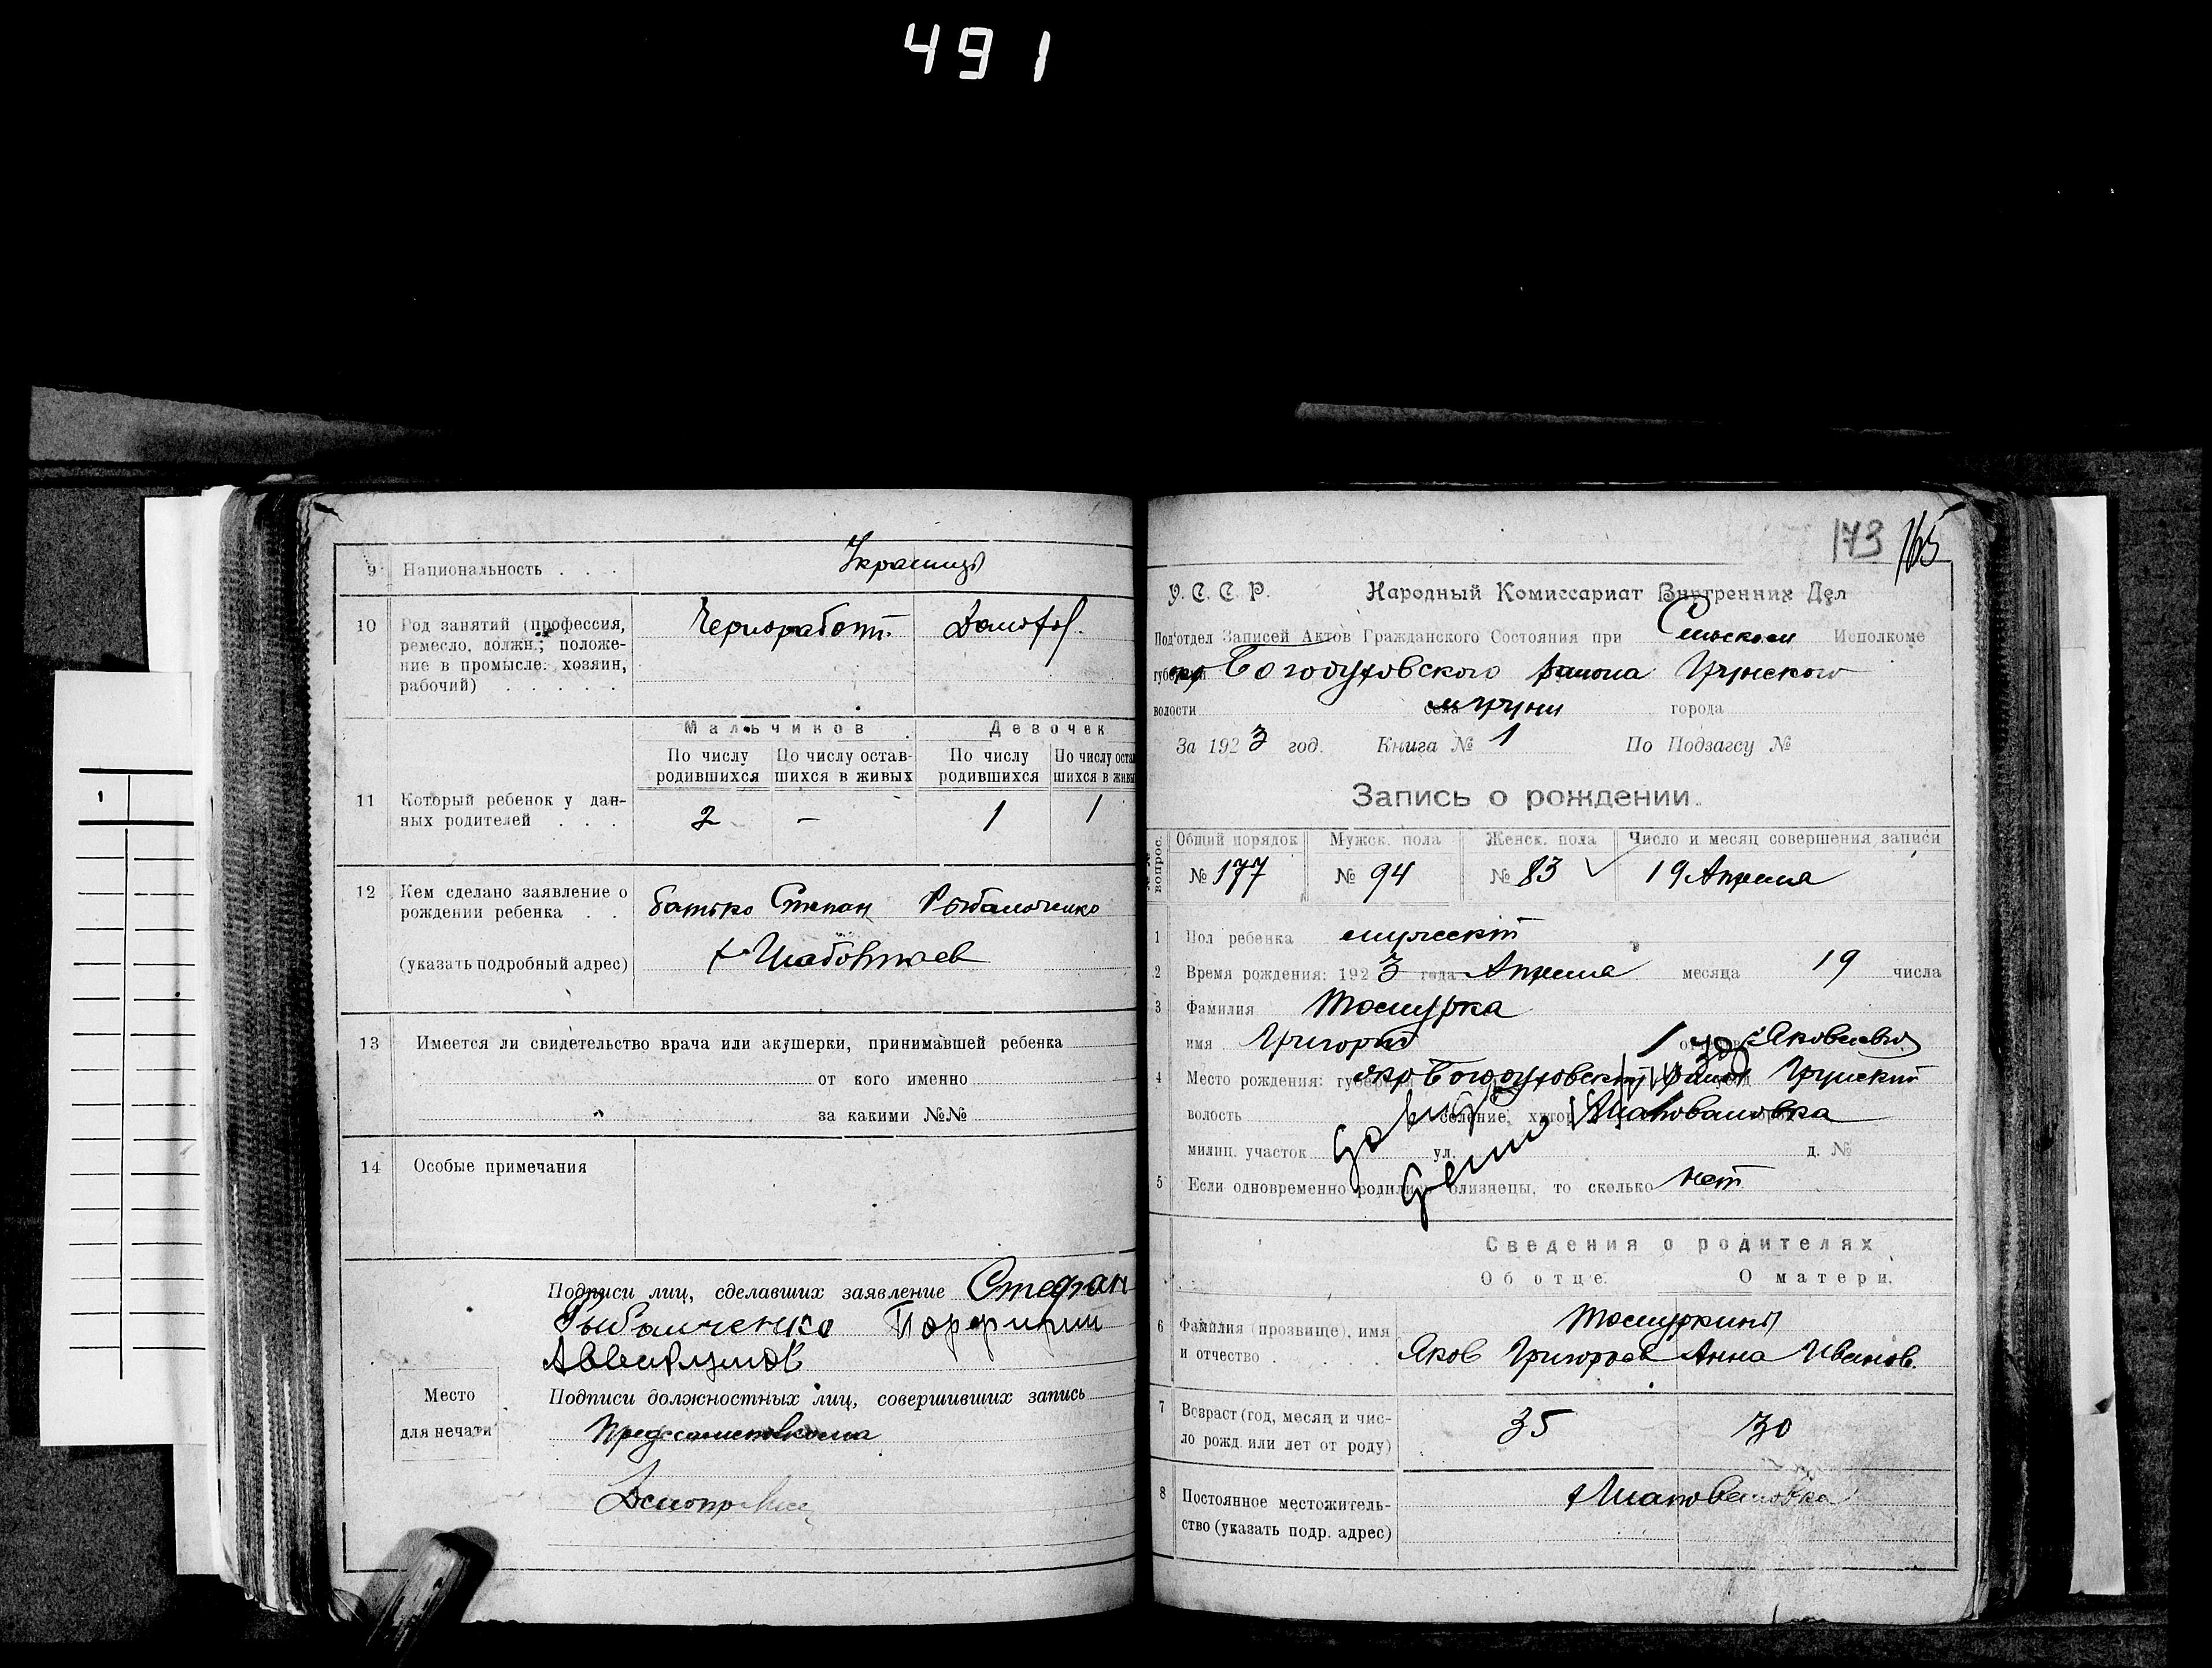 491
9 Национальность . . . Украинцы
10 Род занятий (профессия, ремесло, должн.; положе-
ние в промысле: хозяин,
рабочий) . . . . . Чернорабоч. Домохоз.
Мальчиков Девочек
По числу родившихся По числу остав-шихся в живых По числу родившихся По числу оста шихся в живы
11 Который ребенок у дан-
ных родителей . . . 2 – 1 1
12 Кем сделано заявление о
рождении ребенка . . батько Степан Рыбальченко
(указать подробный адрес)
13 Имеется ли свидетельство врача или акушерки, принимавшей ребенка
от кого именно
за какими №№
14 Особые примечания
Подписи лиц, сделавших заявление Стефан
Рыбальченко Порфирий
Место
для печати
Подписи должностных лиц, совершивших запись
173 165
У. С. С. Р. Народный Комиссариат Внутренних Дел
Под'отдел Записей Актов Гражданского Состояния при Сельском Исполкоме
губернии Богодуховского района Грунского
волости села города
За 1923 год. Книга № 1 По Подзагсу №
Запись о рождении.
вопрос. Общий порядок Мужск. пола Женск. пола Число и месяц совершения записи
№ 177 № 94 № 83 19 Апреля
1 Пол ребенка мужской
2 Время рождения: 1923 года Апреля месяца 19 числа
3 Фамилия
имя Григорий Яковлевич
4 Место рождения: Богодуховский район Грунский
волость селение, хутор
милиц. участок ул. д. №
5 Если одновременно родились близнецы, то сколько нет
Сведения о родителях
Об отце. О матери.
6 Фамилия (прозвище), имя
и отчество Яков Григорьев Анна Иванов.
7 Возраст (год, месяц и чис-
ло рожд. или лет от роду) 35 30
8 Постоянное местожитель-
ство (указать подр. адрес)